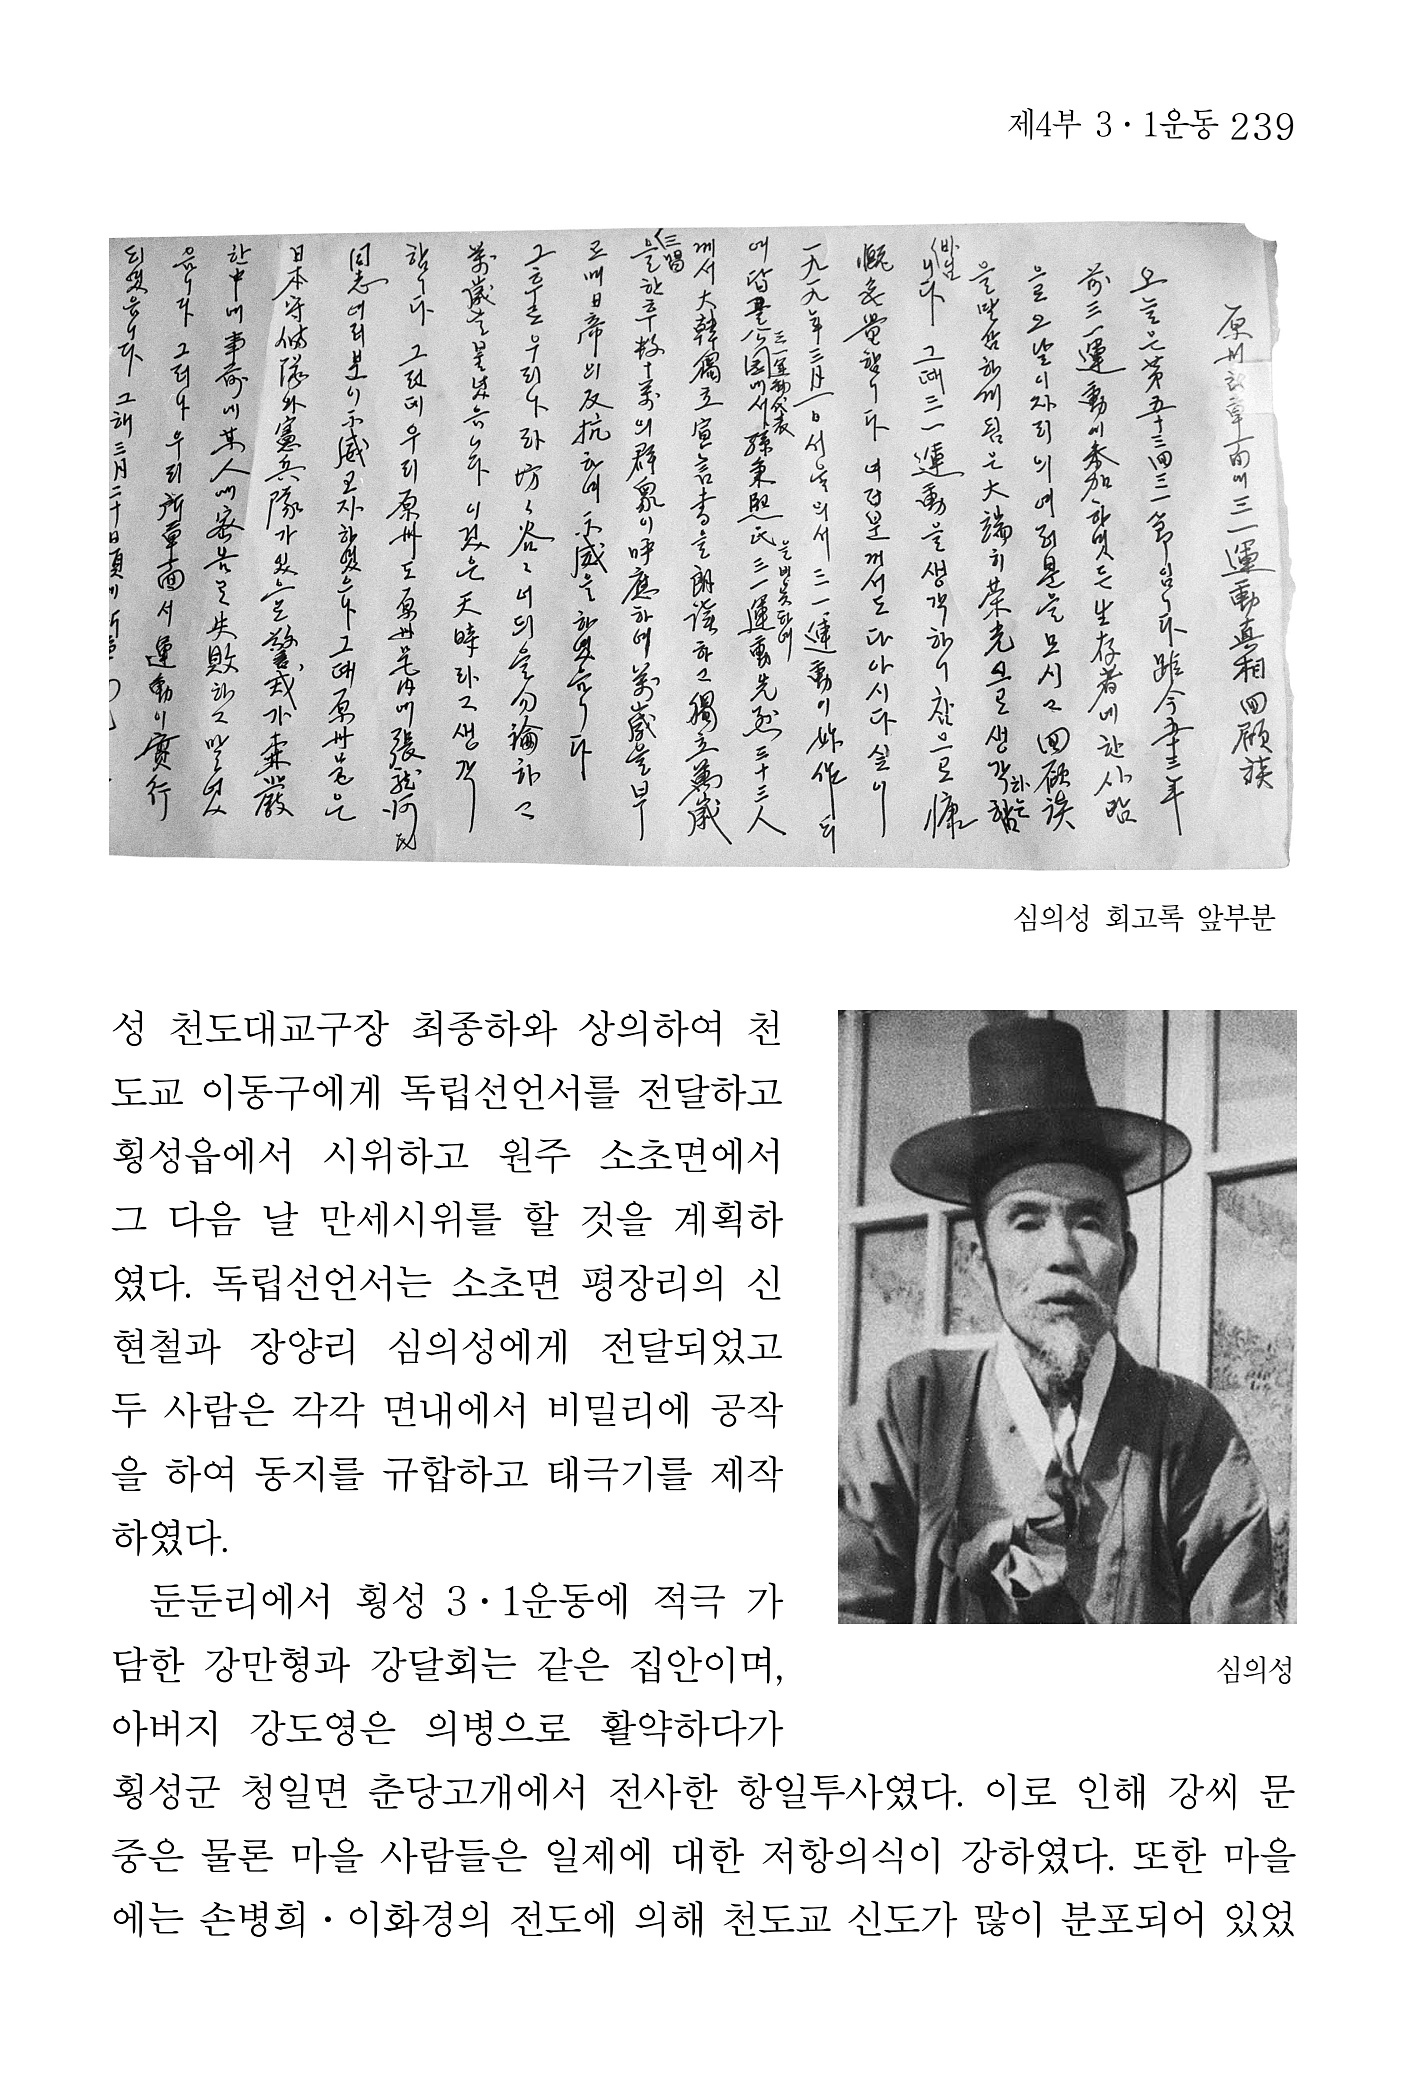 제4부 3·1운동 239
原州 所草面에 三一運動眞相 回顧談
오늘은 第五十三回 三一節임니다 距今 五十三年
前 三一運動에 參加하였든 生存者에 한 사람
을 맞
그때 三一運動을 생각하니 참으로 慷
慨
一九一九年 三月 一日 서울의서 三一運動이 始作되
三一運動代表
三一運動 先烈 三十三人
께서 大韓獨立宣言書을 朗讀하고 獨立萬歲
三唱
을 한 후 數十萬의 群衆이 呼應하에 萬歲을 부
日帝의 反抗하며 示威을 하였음니다
그 후로 우리나라 坊〻谷〻
萬歲을 불렀음니다 이것은 天時라고 생각
함니다 그런데 우리 原州도 原州邑內에 張龍河氏
日本守備隊와 憲兵隊가 있으므 警戒가 森嚴
한 中에 事前에 某人에 密告로 失敗하고 말었
음니다 그러나 우리 所草面서 運動이 實行
되였음니다 그해 三月 二十日頃에
심의성 회고록 앞부분
성 천도대교구장 최종하와 상의하여 천
도교 이동구에게 독립선언서를 전달하고
횡성읍에서 시위하고 원주 소초면에서
그 다음 날 만세시위를 할 것을 계획하
였다. 독립선언서는 소초면 평장리의 신
현철과 장양리 심의성에게 전달되었고
두 사람은 각각 면내에서 비밀리에 공작
을 하여 동지를 규합하고 태극기를 제작
하였다.
둔둔리에서 횡성 3·1운동에 적극 가
담한 강만형과 강달회는 같은 집안이며,
아버지 강도영은 의병으로 활약하다가
심의성
횡성군 청일면 춘당고개에서 전사한 항일투사였다. 이로 인해 강씨 문
중은 물론 마을 사람들은 일제에 대한 저항의식이 강하였다. 또한 마을
에는 손병희·이화경의 전도에 의해 천도교 신도가 많이 분포되어 있었